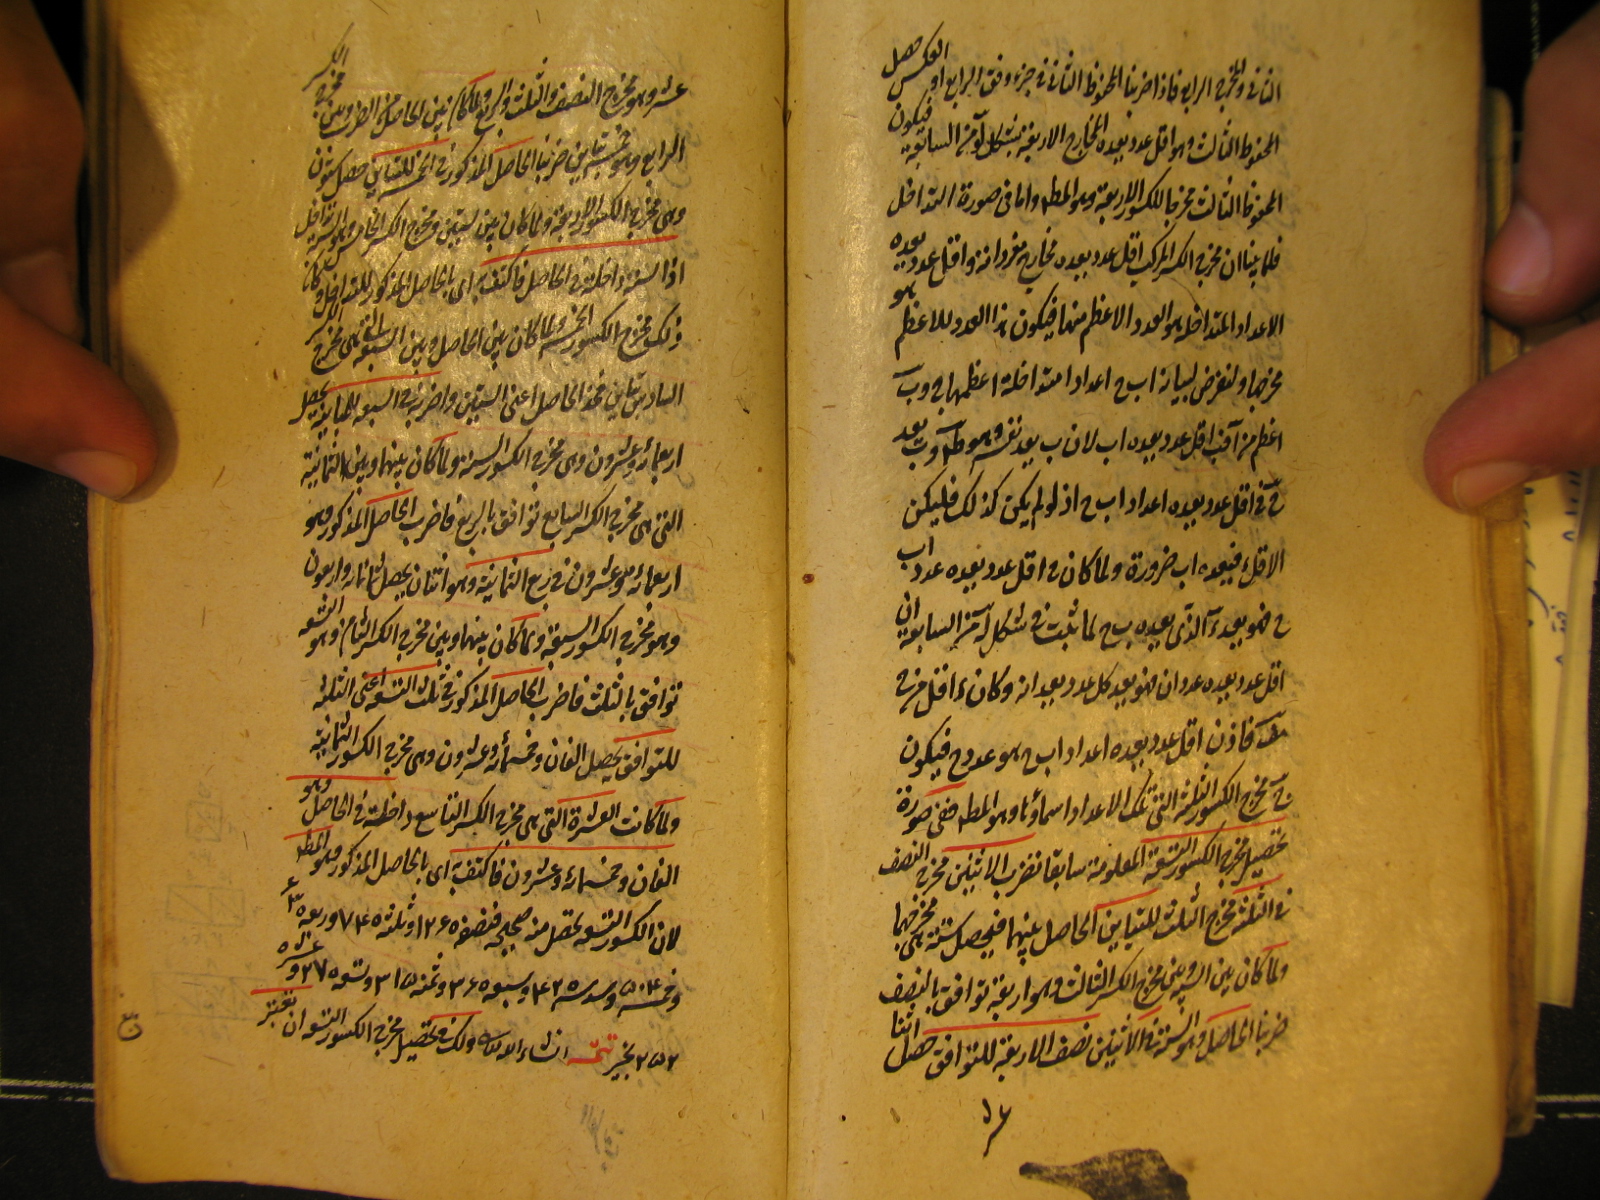 الثانى والمخرج الرابع فاذا ضربنا المحفوظ الثانى فى جزء وفق الرابع او العكس حصل
المحفوظ الثالث فهو اقل عدد يعده المخارج الاربعة بشكل من السابعة فيكون
المحفوظ الثالث مخرجا للكسور الاربعة وهو المط واما فى صورة التداخل
فلما بينا ان مخرج الكسر المركب اقل عدد يعده مخارج مفرداته واقل عدد يعده
الاعداد المتداخلة هو العدد الاعظم منها فيكون هذا العدد للاعظم هو
مخرجها ولنفرض لبيانه اب ج اعدادا متداخلة اعظمها ج و ب
اعظم من آ فب اقل عدد يعده اب لان ب يعد نفسه وهو ظ و ب يعد
ج فج اقل عدد يعده اعداد اب ج اذ لو لم يكن كذلك فليكن
الاقل ء فيعده اب ضرورة ولما كان ب اقل عدد يعده عدد اب
ج فهو يعد ء الذى يعده ب ج لما ثبت فى شكل من السابعة ان
اقل عدد يعده عددان فهو يعد كل عدد يعدانه وكان ء اقل من ج
هف فاذن اقل عدد يعده اعداد اب ج هو عدد ج فيكون
ج مخرج الكسور الثلثة التى تلك الاعداد اسماؤها وهو المط ففى صورة
تحصيل مخرج الكسور التسعة المعلومة سابقا نضرب الاثنين مخرج النصف
فى الثلثة مخرج الثلث للتباين الحاصل بينهما فيحصل ستة هى مخرجهما
ولما كان بين الستة وبين مخرج الكسر الثالث وهو اربعة توافق بالنصف
ضربنا الحاصل وهو الستة فى الاثنين نصف الاربعة للتوافق حصل اثنا
عشر وهو مخرج النصف والثلث والربع ولما كان بين الحاصل من الضرب وبين مخرج الكسر
الرابع وهو خمسة تباين ضربنا الحاصل المذكور فى الخمسة للتباين حصل ستون
وهى مخرج الكسور الاربعة ولما كان بين ستين ومخرج الكسر الخامس وهو الستة تداخل
اذ الستة داخلة فى الحاصل فاكتف به اى بالحاصل المذكور للتداخل وكان
ذلك مخرج الكسور الخمسة ولما كان بين الحاصل وبين السبعة التى هى مخرج الكسر
السادس تباين فخذ الحاصل اعنى الستين واضربه فى السبعة للمباينة يحصل
اربعمائة وعشرون وهى مخرج الكسور الستة ولما كان بينها وبين الثمانية
التى هى مخرج الكسر السابع توافق بالربع فاضرب الحاصل المذكور وهو
اربعمائة وعشرون فى ربع الثمانية وهو اثنان يحصل ثمانمائة واربعون
وهو مخرج الكسور السبعة ولما كان بينها وبين مخرج الكسر الثامن وهو التسعة
توافق بالثلث فاضرب الحاصل المذكور فى ثلث التسعة اعنى الثلثة
للتوافق يحصل الفان وخمسمائة وعشرون وهى مخرج الكسور الثمانية
ولما كانت العشرة التى هى مخرج الكسر التاسع داخلة فى الحاصل وهو
الفان وخمسمائة وعشرون فاكتف به اى بالحاصل المذكور وهو المط
لان الكسور التسعة تحصل منه صحيحة فنصفه ١٢٦٠ وثلثه ٨٤٠ وربعه ٦٣٠
وخمسه ٥٠٤ وسدسه ٤٢٠ وسبعه ٣٦٠ وثمنه ٣١٥ وتسعه ٢٨٠ وعشره
٢٥٢ تتمة ولك فى تحصيل مخرج الكسور التسعة ان تعتبر